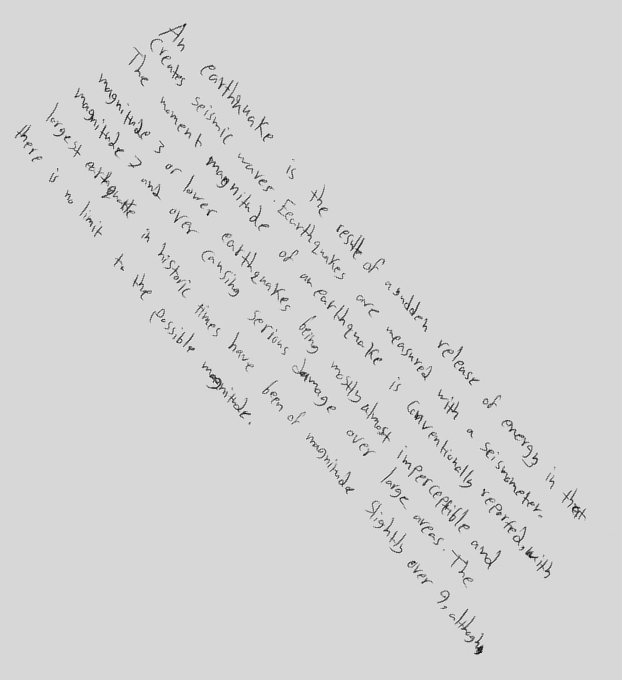 An earthquake is the result of a sudden release of energy in that
creates seismic waves. Eearthquakes are measured with a seismometer.
The moment magnitude of an earthquake is conventionally reported, with
magnitude 3 or lower earthquakes being mostly almost imperceptible and
magnitude 7 and over causing serious damage over large areas. The
largest earthquake in historic times have been of magnitude slightly over 9, although
there is no limit to the possible magnitude.